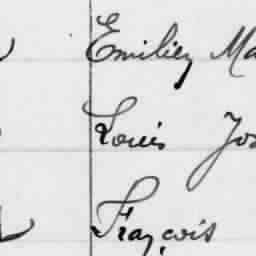 Emiliey Ma
Louis Jos
François